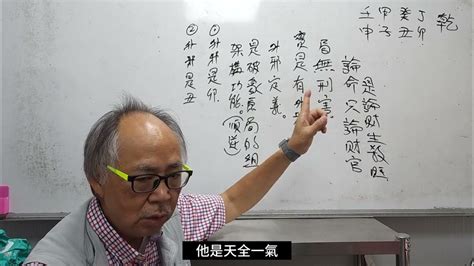 乾
丁卯
癸丑
甲子
壬申
是論財生殺
論命 論財官
局無刑害
是有外
定義
是破 原局的組
架構功能。(順逆)
① 外 是卯
② 外 是丑
他是天全一氣